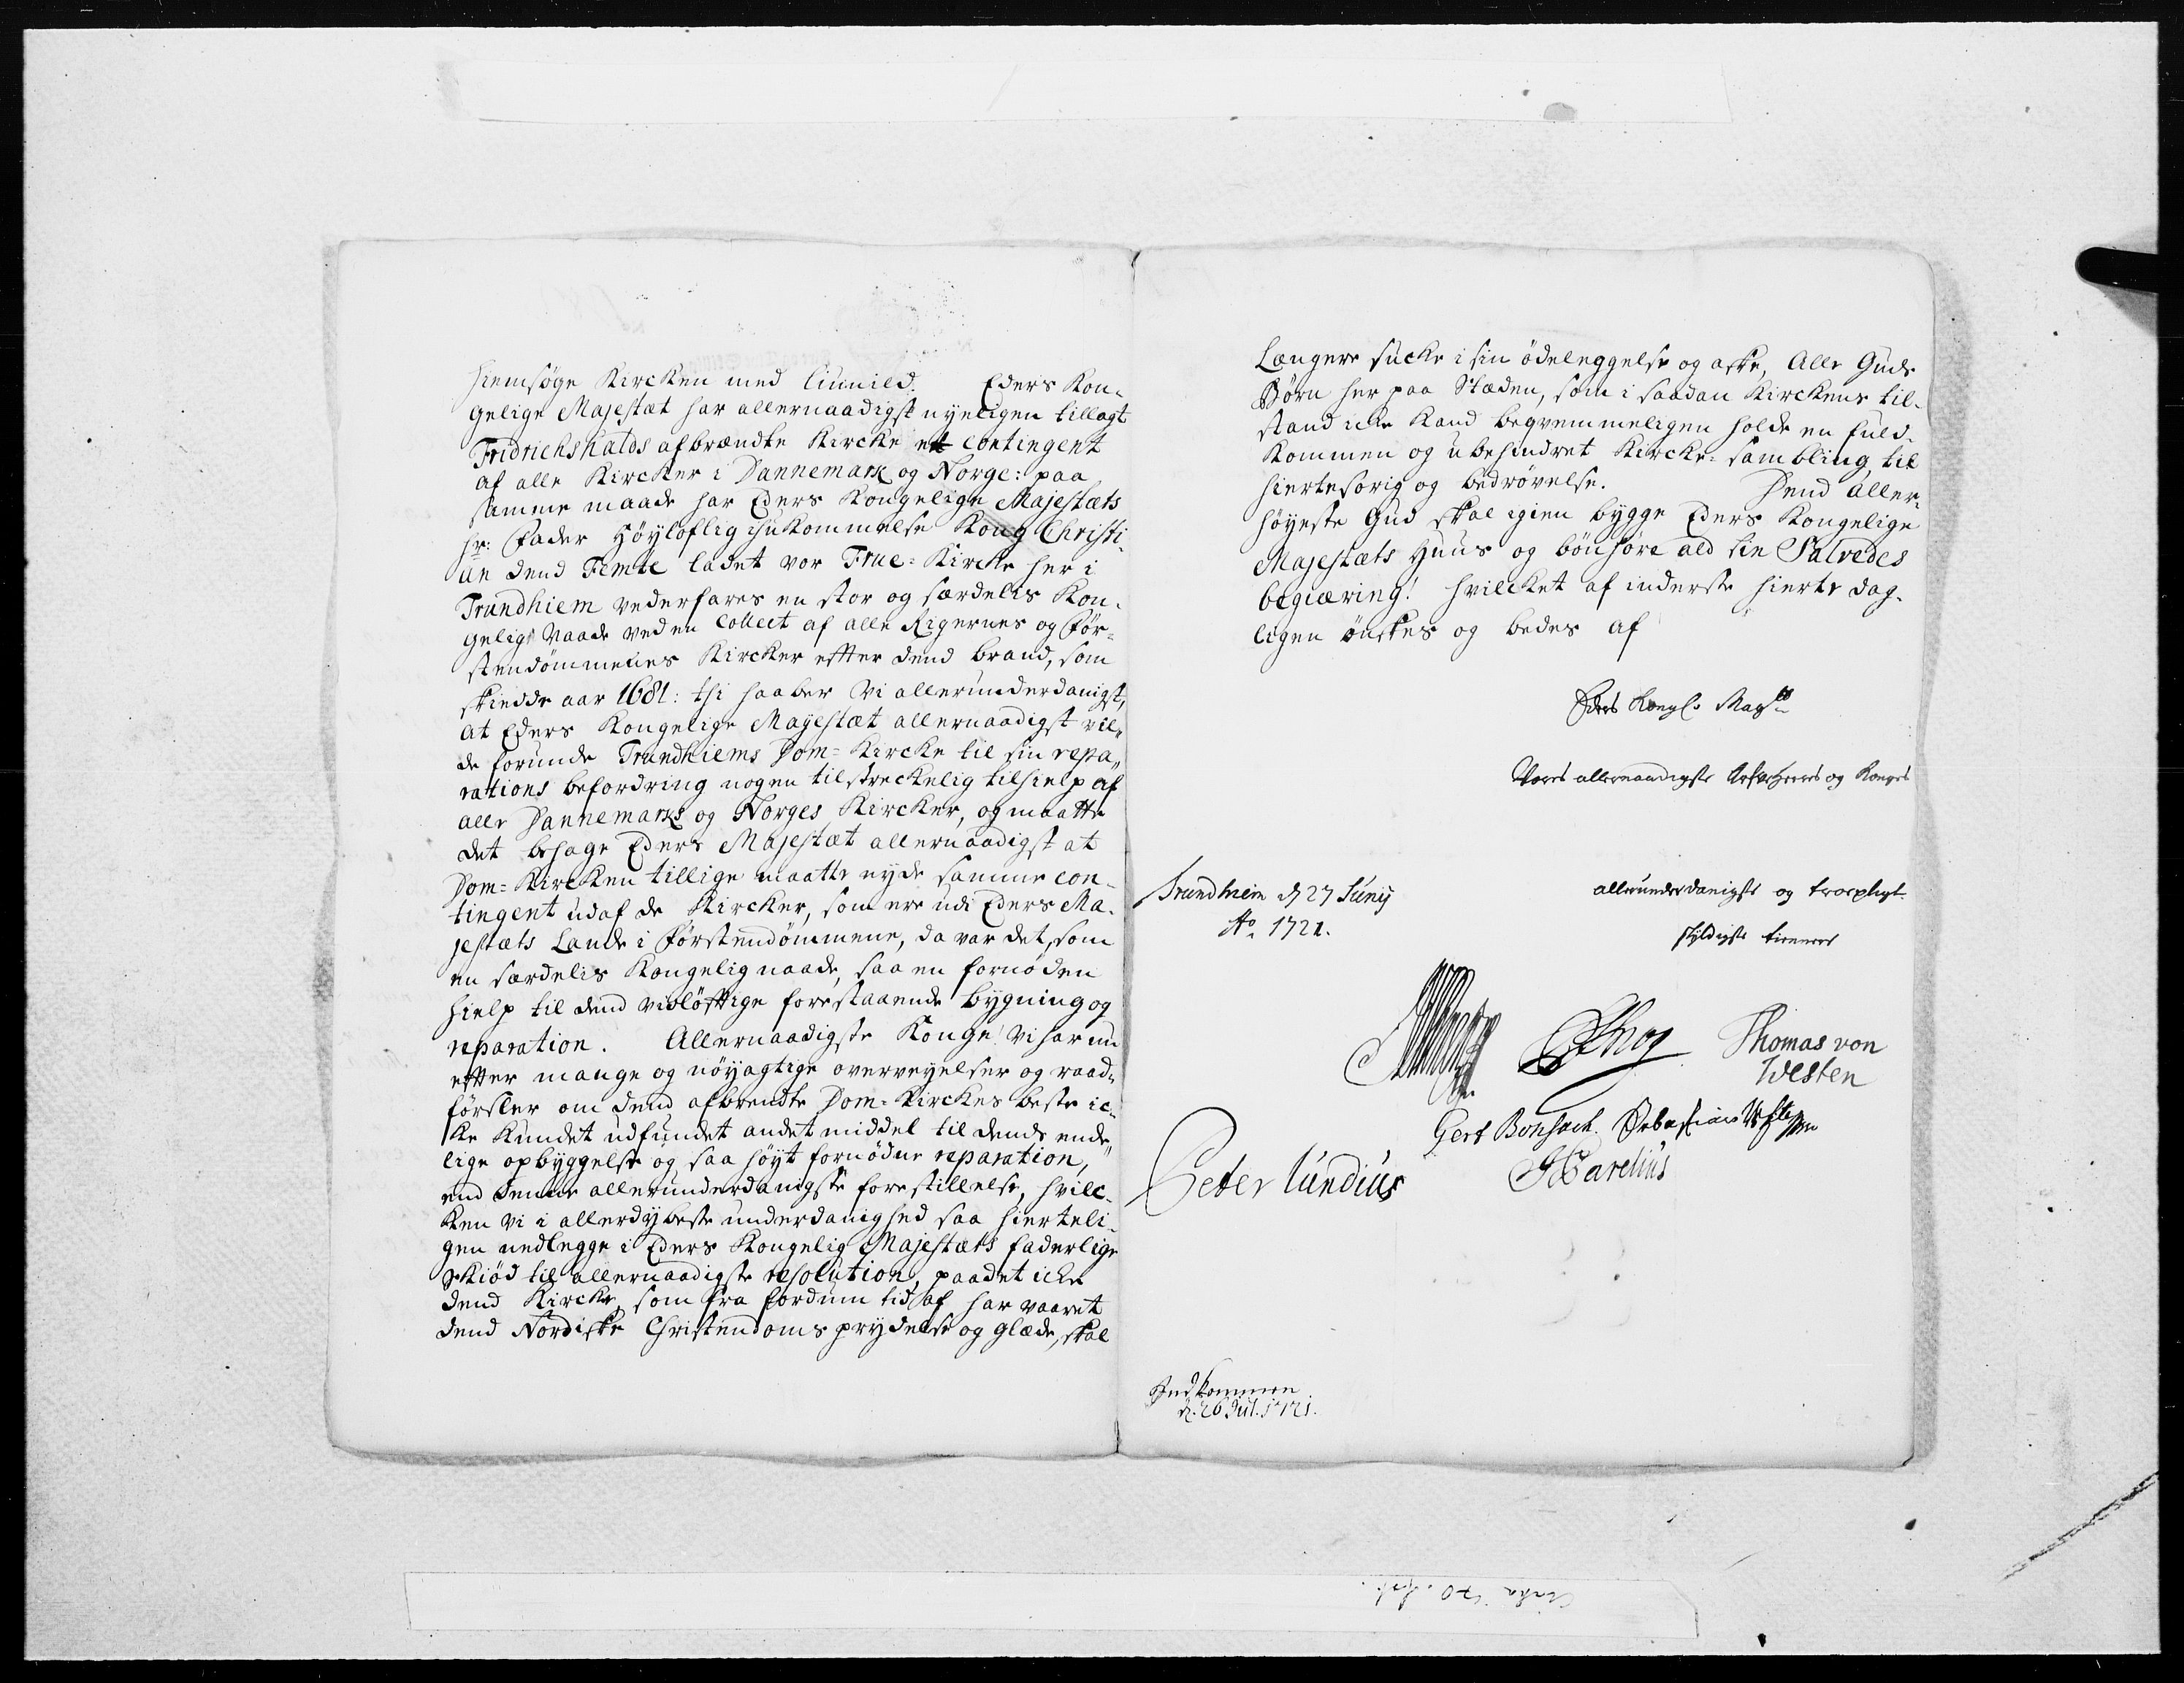 hiemsøge Kircken med liunild. Eders Kon-
gelige Majestæt har allernaadigst nyeligen tillagt
Fridrichshalds afbrændte Kircke et contingent
af alle Kircker i Dannemark og Norge: paa
samme maade har Eders Kongelige Majestæts
hr: Fader Høyloflig ihukommelse Kong Christi-
an dend Femte ladet vor Frue-Kircke her i
Trundhiem vederfares en stor og særdelis Kon-
gelig Naade ved en Collect af alle Rigernes og För-
stendömmenes Kircker effter dend brand, som
skiedde aar 1681: thi haaber Vi allerunderdanigst,
at Eders Kongelige Mayestæt allernaadigst vil-
de forunde Trundhiems Dom-Kircke til sin repa-
rations befordring nogen tilstreckelig tilhielp af
alle Dannemarks og Norges Kircker, og maatte
det behage Eders Majestæt allernaadigst at
Dom-Kircken tillige maatte nyde samme con-
tingent udaf de Kircker, som ere udi Eders Ma-
jestæts Lande i Förstendömmene, da var det, som
en særdelis Kongelig naade, saa en fornöden
hielp til dend vidlöfftige forestaaende bygning og
reparation. Allernaadigste Konge! Vi har nu
effter mange og nöyagtige overveyelser og raad-
försler om dend afbrendte Dom-Kirckes beste ic-
ke kundet udfundet andet middel til dends ende-
lige opbyggelse og saa höyt fornödne reparation,
end denne allerunderdanigste forestillelse, hvilc-
ken vi i allerdybeste underdanighed saa hierteli-
gen nedlegge i Eders Kongelig Majestæts faderlige
skiöd til allernaadigste resolution, paa det icke
dend Kircke, som fra fordum tid af har vaaret
dend Nordiske Christendoms prydelse og glæde, skal
Længere sucke i sin ödeleggelse og aske, Alle Guds
Börn her paa Stæden, som i saadan Kirckens til-
stand icke kand beqvemmeligen holde en fuld-
kommen og ubehindret Kircke-sambling, til
hiertesorig og bedrövelse. Dend Aller-
höyeste Gud skal igien bygge Eders Kongelige
Majestæts Huus og bönhöre ald sin Salvedes
begiæring! hvilcket af inderste hierte dag-
ligen önskes og bedes af
Eders Kongl: Mayts
Vores allernaadigste Arfve Herres og Konges
Trundhiem d 27 Junij
Ao 1721.
allerunderdanigste og troepligt-
skyldigste tienere
Thomas von
Westen
Gert Bonsach.
Peter Lundius
Indkommen
d. 26 Jul. 1721.